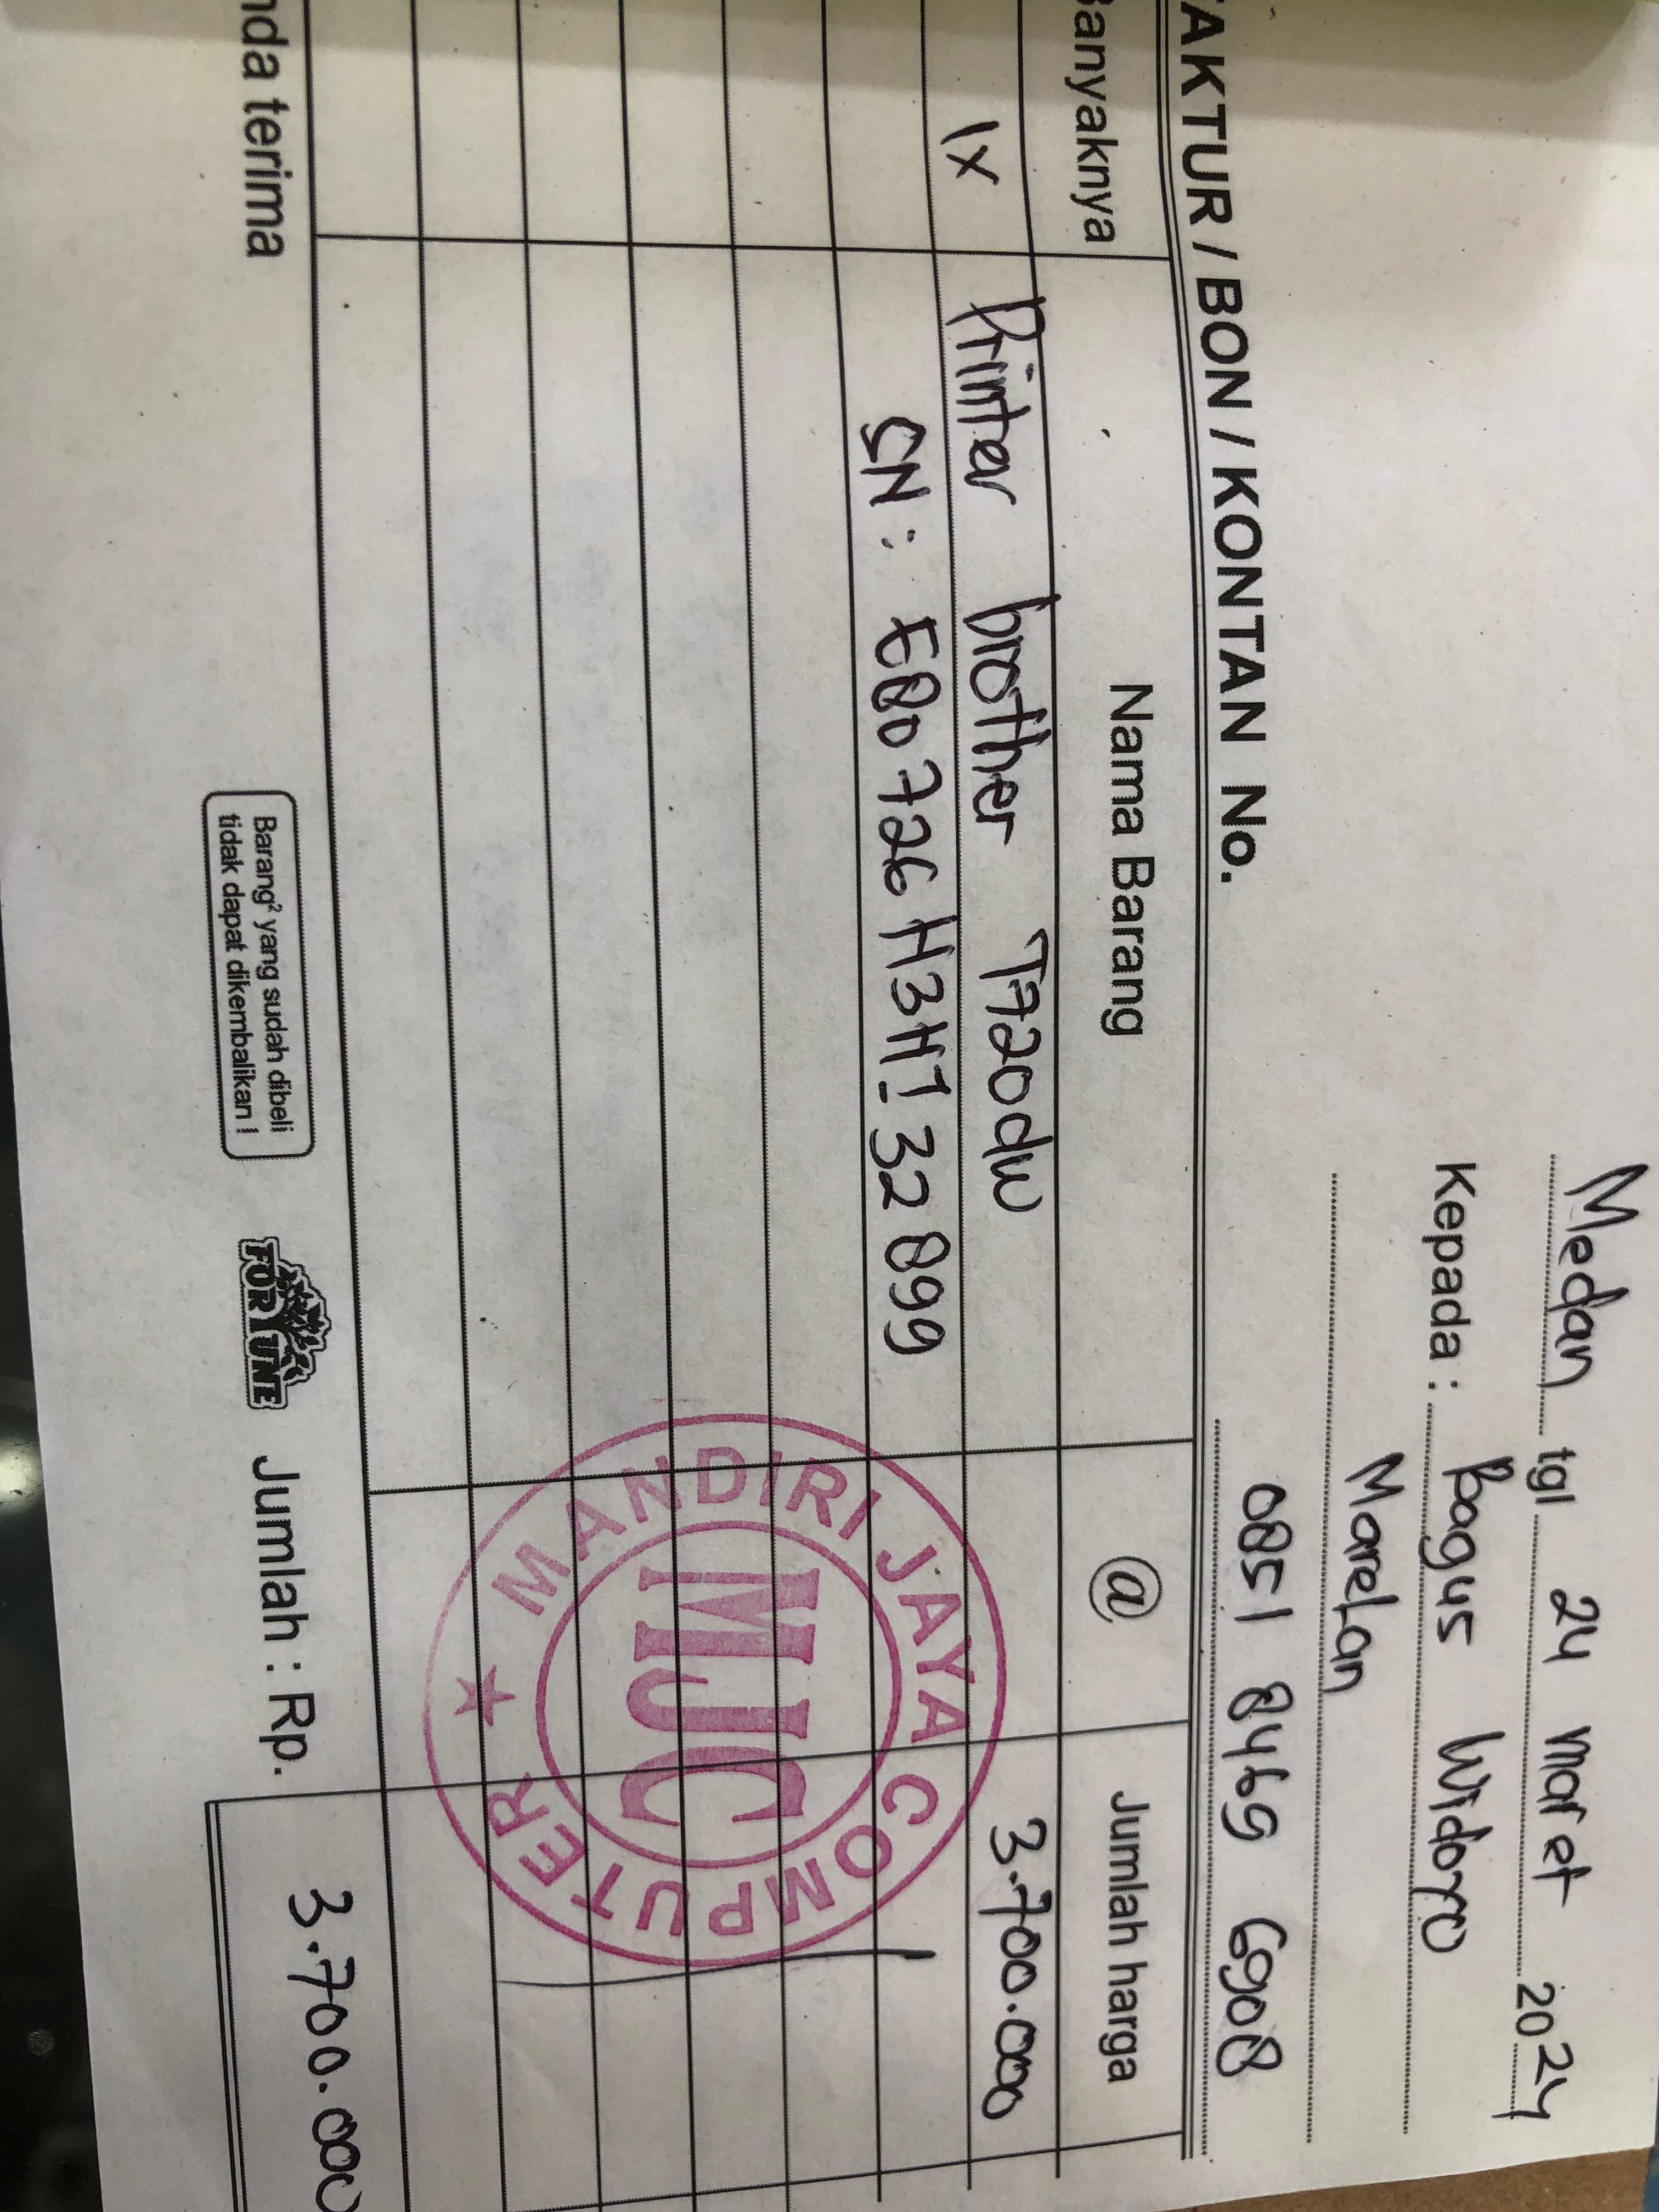 Medan tgl 24 maret 2024
Kepada : Bagus Widoyo
Marelan
0851 8469 6908
AKTUR / BON / KONTAN No.
Banyaknya Nama Barang @ Jumlah harga
1x Printer brother T720dw 3.700.000
SN : E80726H3H1_32899
MANDIRI JAYA COMPUTER
MJC
nda terima
Barang² yang sudah dibeli
tidak dapat dikembalikan !
FORTUNE
Jumlah : Rp. 3.700.000